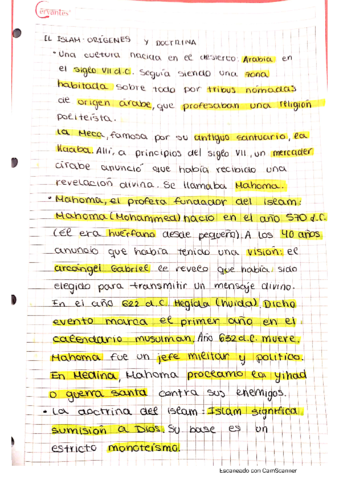 Cervantes
EL ISLAM - ORÍGENES Y DOCTRINA
• Una cultura nacida en el desierto Arabia en
el siglo VII d.C. Seguía siendo una zona
habitada sobre todo por tribus nómadas
de origen árabe, que profesaban una religión
politeísta.
La Meca, famosa por su antiguo santuario, la
Kaaba. Allí, a principios del siglo VII, un mercader
árabe anunció que había recibido una
revelación divina. Se llamaba Mahoma.
• Mahoma, el profeta fundador del islam:
Mahoma (Mohammed) nació en el año 570 d.C.
(él era huérfano desde pequeño). A los 40 años
anunció que había tenido una visión: el
arcángel Gabriel le reveló que había sido
elegido para transmitir un mensaje divino.
En el año 622 d.C. Hégida (huida). Dicho
evento marca el primer año en el
calendario musulman. Año 632 d.C. muere,
Mahoma fue un jefe militar y político.
En Medina, Mahoma proclamo la yihad
o guerra santa contra sus enemigos.
• La doctrina del islam: Islam significa
sumisión a Dios. Su base es un
estricto monoteísmo.
Escaneado con CamScanner